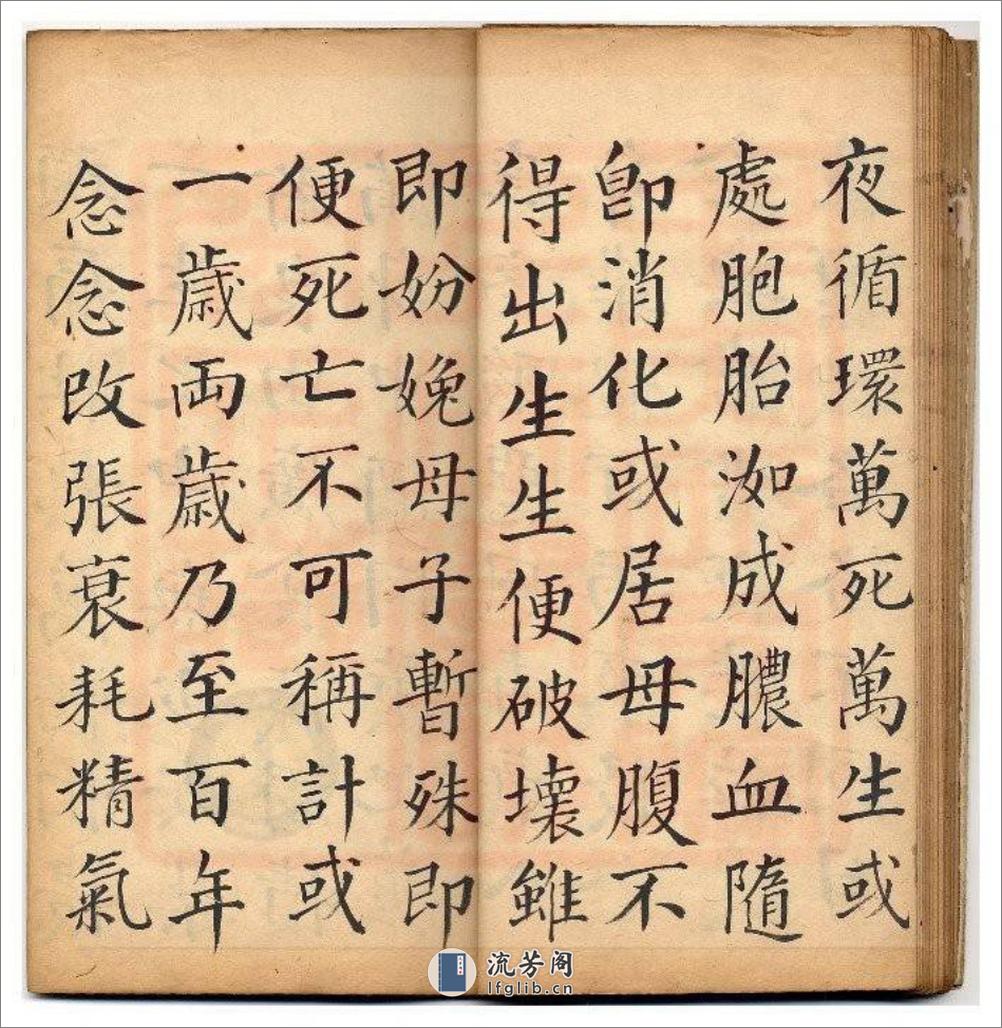 夜循環萬死萬生或
處胞胎洳成膿血隨
卽消化或居母腹不
得出生生便破壞雖
即妢娩母子暫殊即
便死亡不可稱計或
一歳両歳乃至百年
念念改張衰耗精氣
流芳阁
lfglib.cn